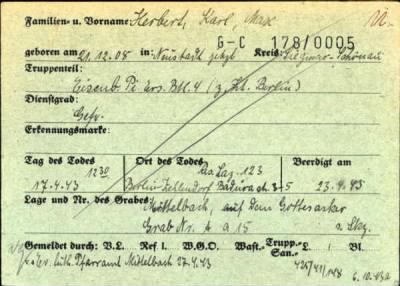 Familien- u. Vorname: Herbert, Karl, Max
G-C 178/0005
geboren am 21.12.08 in: Neustadt jetzt Kreis: Siegmar-Schönau
Truppenteil:
Eisenb. Pi. Ers. Btl. 4 (z. Zt. Berlin)
Dienstgrad:
Gefr.
Erkennungsmarke:
Tag des Todes Ort des Todes Beerdigt am
12 30 Res. Laz. 123
17.4.43 Berlin-Zehlendorf 3-5 23.4.43
Lage und Nr. des Grabes
Mittelbach, auf dem Gottesacker
Grab Nr. A a 15
Gemeldet durch: V.L. Ref I. W.G.O. Wast.- Trupp.- San.- L. Bl.
luth. Pfarramt Mittelbach 27.4.43